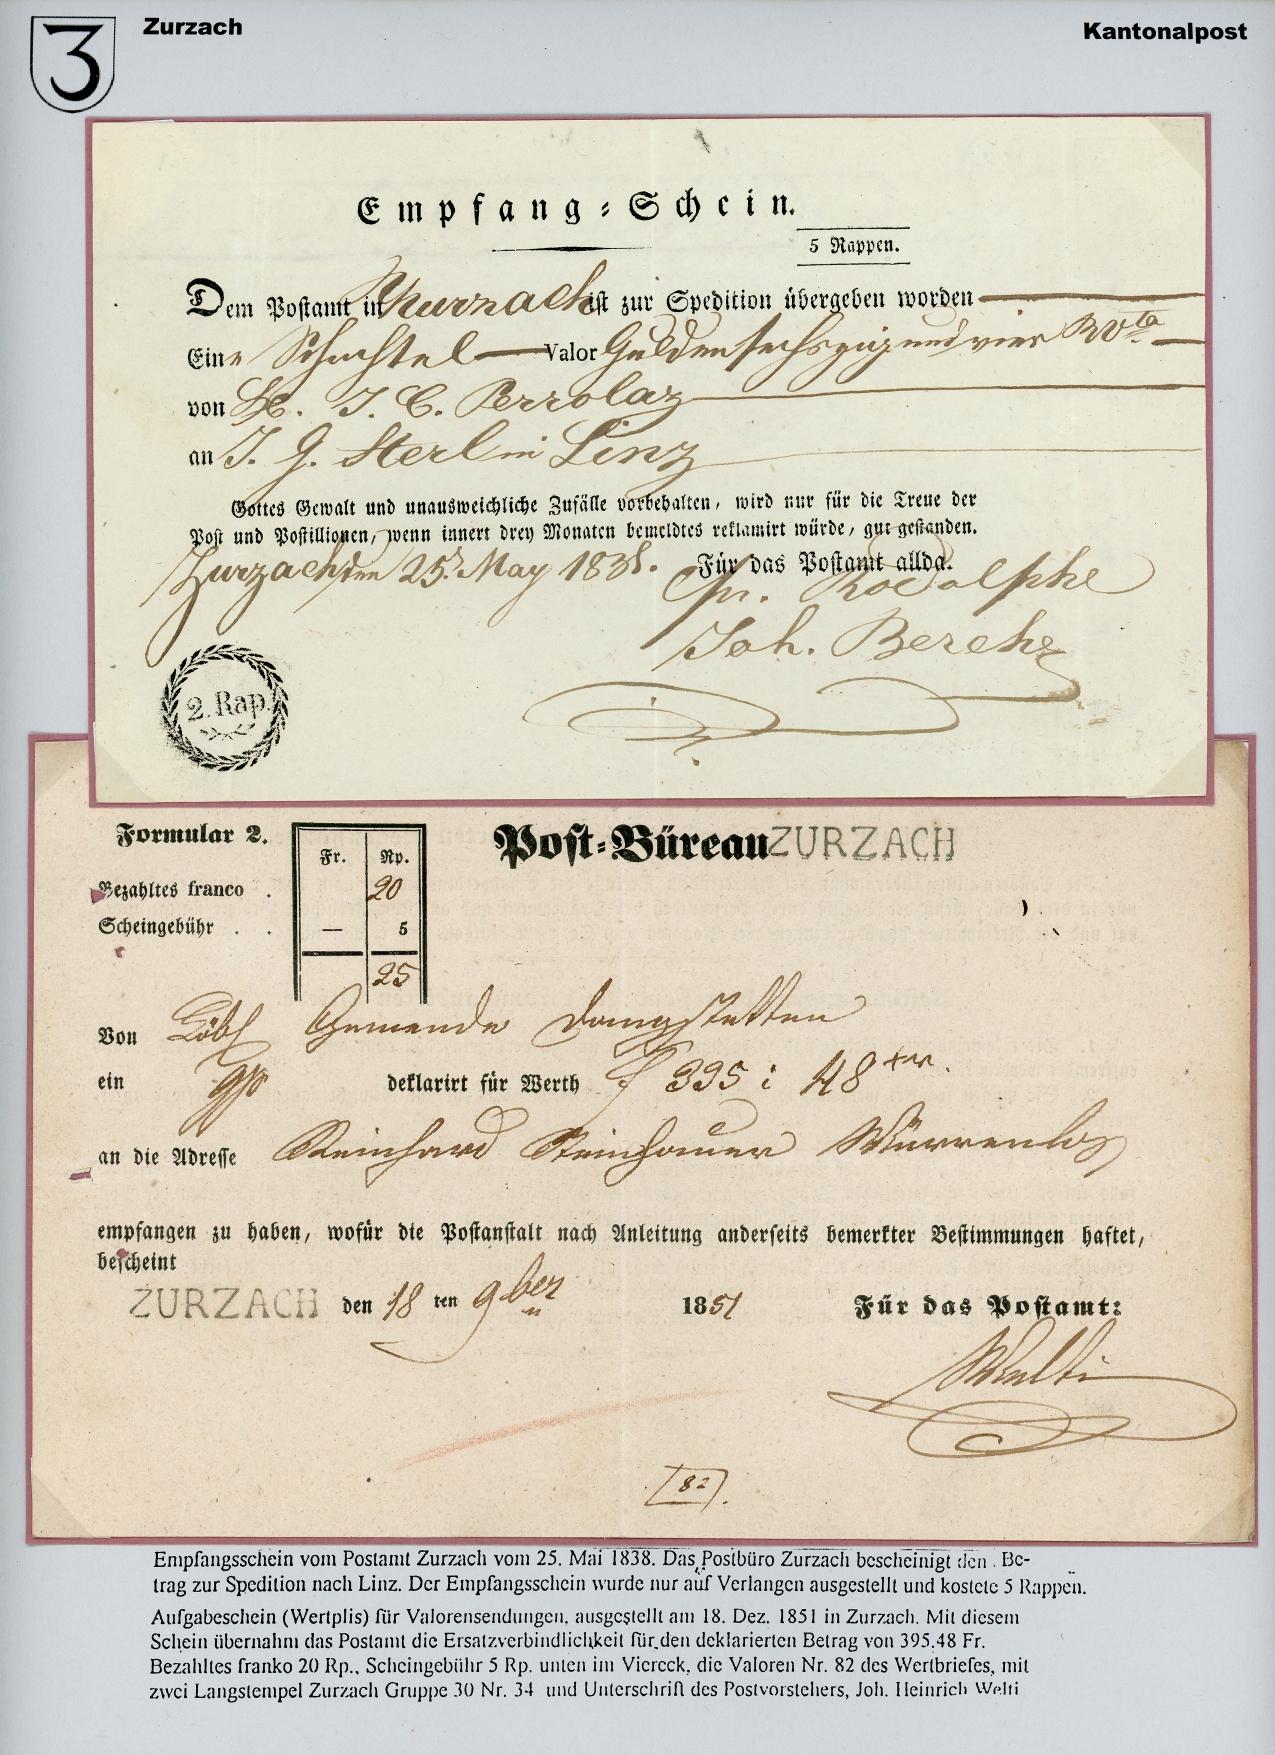 3
Zurzach
Kantonalpost
Empfang-Schein.
5 Rappen.
Dem Postamt in Zurzach ist zur Spedition übergeben worden
Eine Schachtel Valor Gulden sechszig und vier
von J. C. Perrolaz
an J. G. Sterl in Linz
Gottes Gewalt und unausweichliche Zufälle vorbehalten, wird nur für die Treue der
Post und Postillionen, wenn innert drey Monaten bemeldtes reklamirt würde, gut gestanden.
Zurzach den 25. May 1838. Für das Postamt allda.
Rodolphe
Joh.
2. Rap.
Formular 2.
Fr. Rp.
Post-Büreau ZURZACH
Bezahltes franco . 20
Scheingebühr . . — 5
25
Von Löbl Gemeinde Dangstetten
ein deklarirt für Werth f 395 : 48 xr.
an die Adresse Reinhard Steinhauer Würrenlos
empfangen zu haben, wofür die Postanstalt nach Anleitung anderseits bemerkter Bestimmungen haftet,
bescheint
ZURZACH den 18 ten 9ber 1851 Für das Postamt:
Welti
82
Empfangsschein vom Postamt Zurzach vom 25. Mai 1838. Das Postbüro Zurzach bescheinigt den Be-
trag zur Spedition nach Linz. Der Empfangsschein wurde nur auf Verlangen ausgestellt und kostete 5 Rappen.
Aufgabeschein (Wertplis) für Valorensendungen, ausgestellt am 18. Dez. 1851 in Zurzach. Mit diesem
Schein übernahm das Postamt die Ersatzverbindlichkeit für den deklarierten Betrag von 395.48 Fr.
Bezahltes franko 20 Rp., Scheingebühr 5 Rp. unten im Viereck, die Valoren Nr. 82 des Wertbriefes, mit
zwei Langstempel Zurzach Gruppe 30 Nr. 34 und Unterschrift des Postvorstehers, Joh. Heinrich Welti